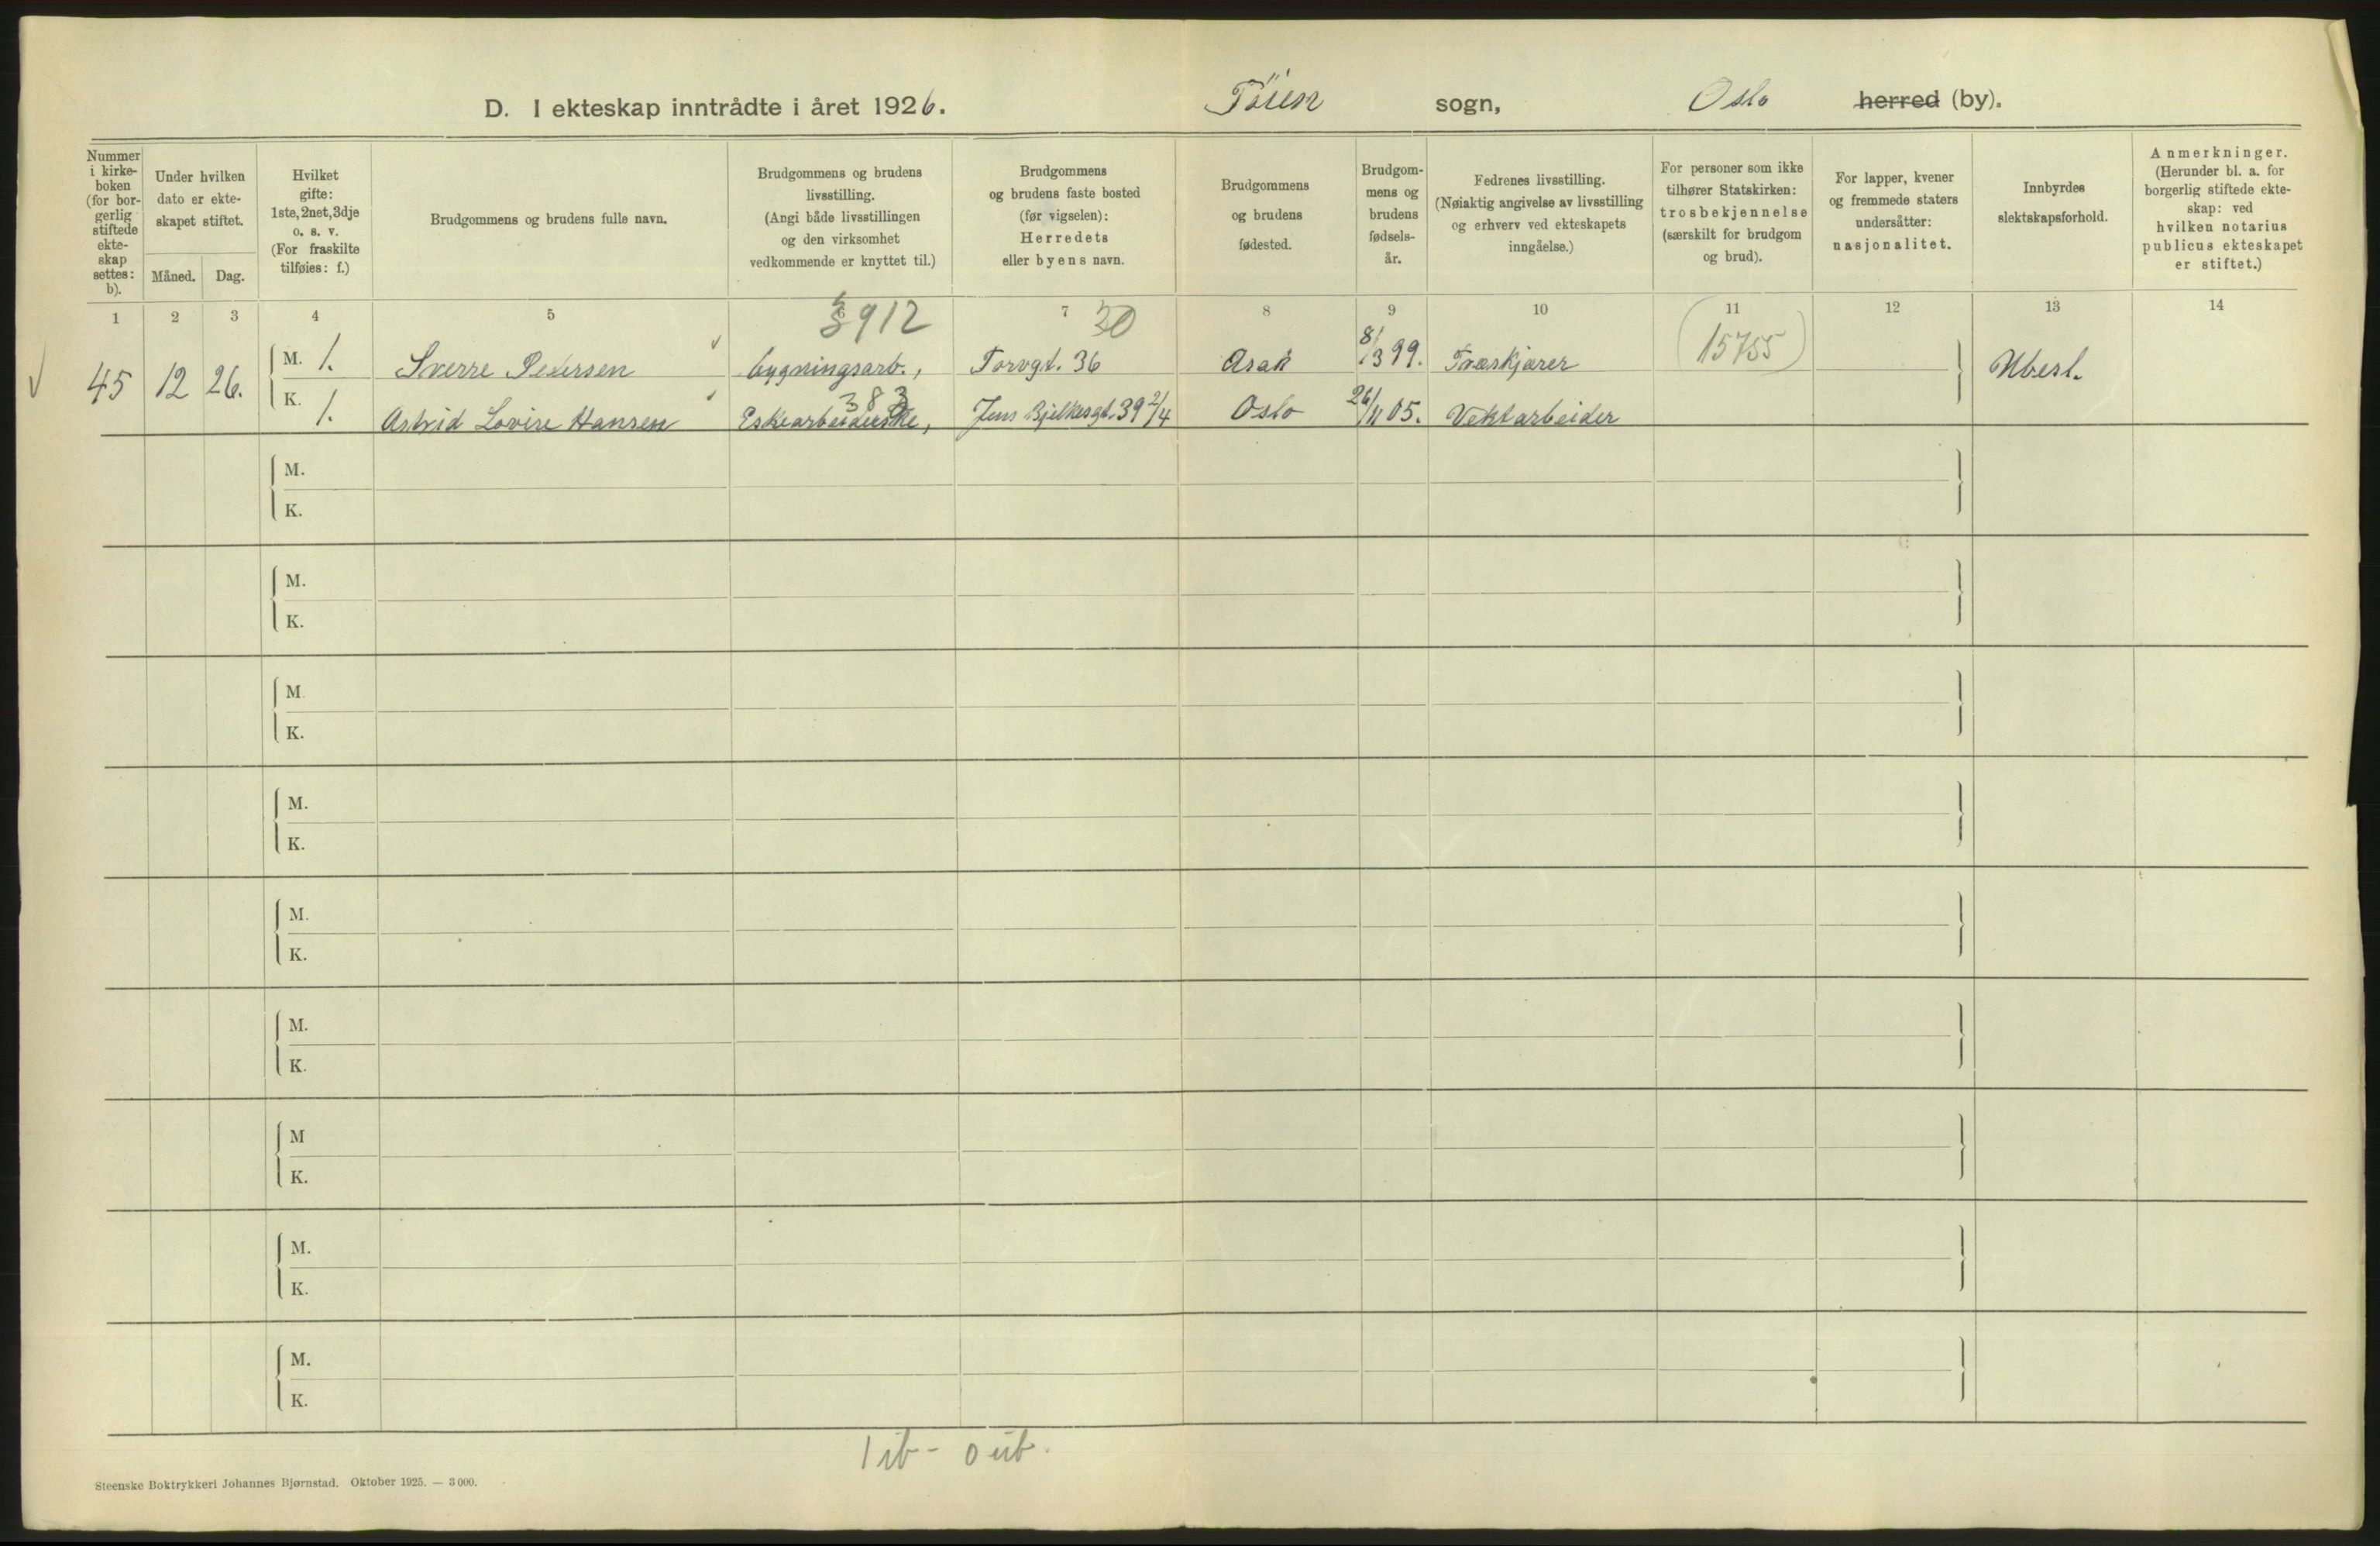 D. I ekteskap inntrådte i året 1926. Töien sogn, Oslo herred (by).
Nummer i kirke- boken (for bor- gerlig stiftede ekte- skap settes: b).
Under hvilken dato er ekte- skapet stiftet.
Måned. Dag.
Hvilket gifte: 1ste, 2net, 3dje o. s. v. (For fraskilte tilføies: f.)
Brudgommens og brudens fulle navn.
Brudgommens og brudens livsstilling. (Angi både livsstillingen og den virksomhet vedkommende er knyttet til.)
Brudgommens og brudens faste bosted (før vigselen): Herredets eller byens navn.
Brudgommens og brudens fødested.
Brudgom- mens og brudens fødsels- år.
Fedrenes livsstilling. (Nøiaktig angivelse av livsstilling og erhverv ved ekteskapets inngåelse.)
For personer som ikke tilhører Statskirken: trosbekjennelse (særskilt for brudgom og brud).
For lapper, kvener og fremmede staters undersåtter: nasjonalitet.
Innbyrdes slektskapsforhold.
Anmerkninger. (Herunder bl. a. for borgerlig stiftede ekte- skap: ved hvilken notarius publicus ekteskapet er stiftet.)
1 2 3 4 5 7 8 9 10 11 12 13 14
912 30
45 12 26. M. 1. Sverre Petersen bygningsarb., Torvgt. 36 Asak 8/3 99. Træskjærer (15755) Ubesl.
383
K. 1. Astrid Lovise Hansen Eskearbeiderske, Jens Bjelkesgt. 39 2/4 Oslo 26/11 05. Vektarbeider
M.
K.
M.
K.
M.
K.
M.
K.
M.
K.
M.
K.
M
K.
M.
K.
M.
K.
1 ib - 0 ub.
Steenske Boktrykkeri Johannes Bjørnstad. Oktober 1925. — 3 000.